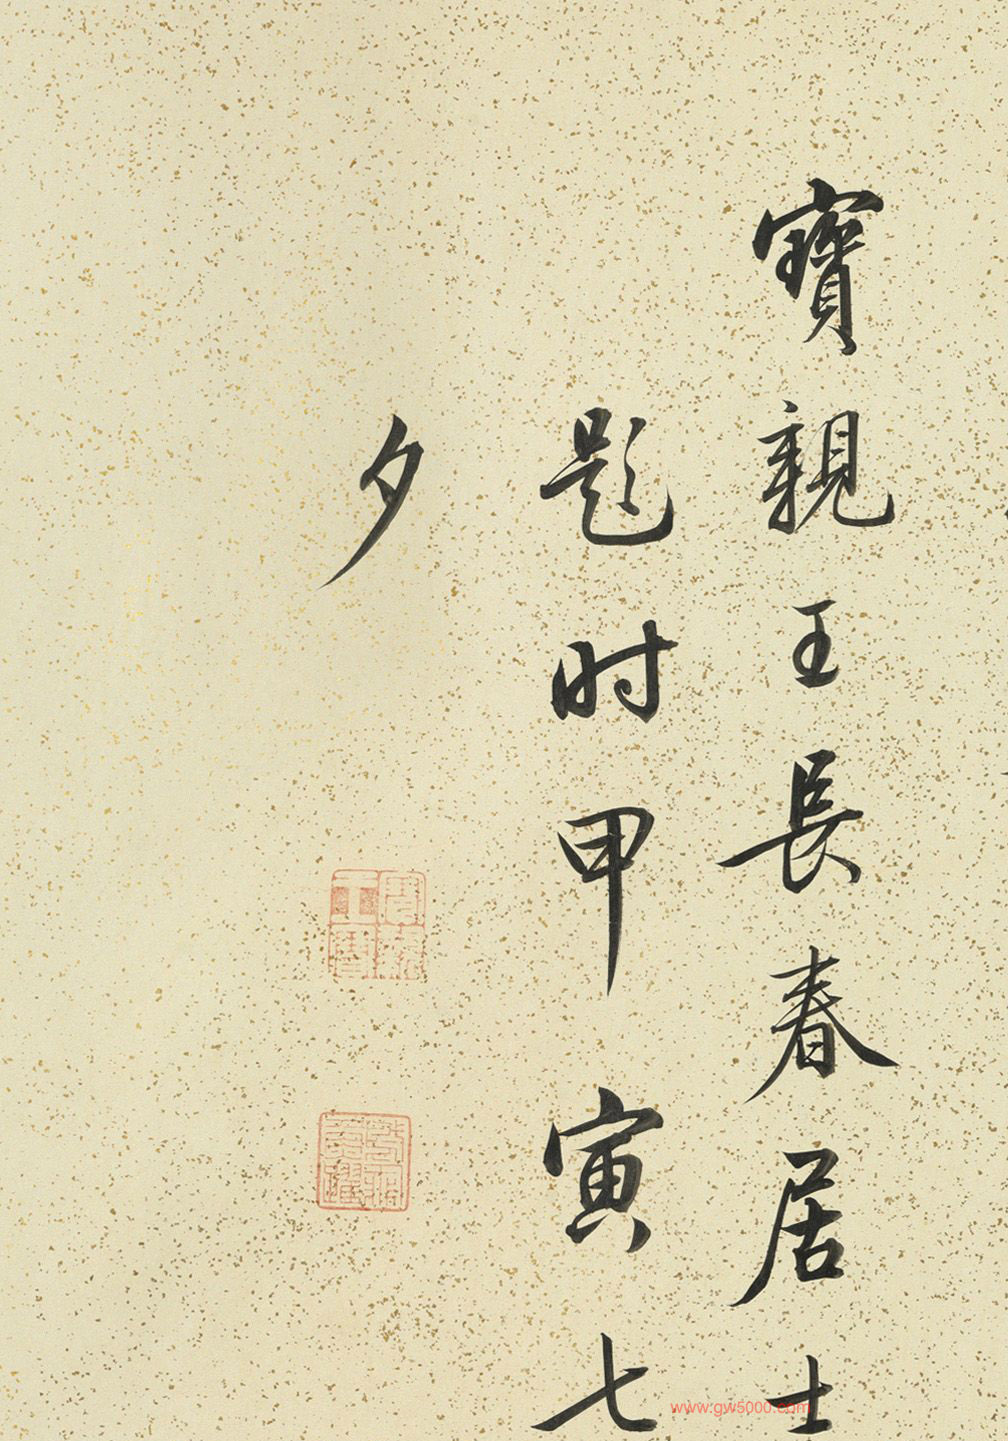 寶親王長春居士
題时甲寅七
夕
寶親王寶
www.gw5000.com